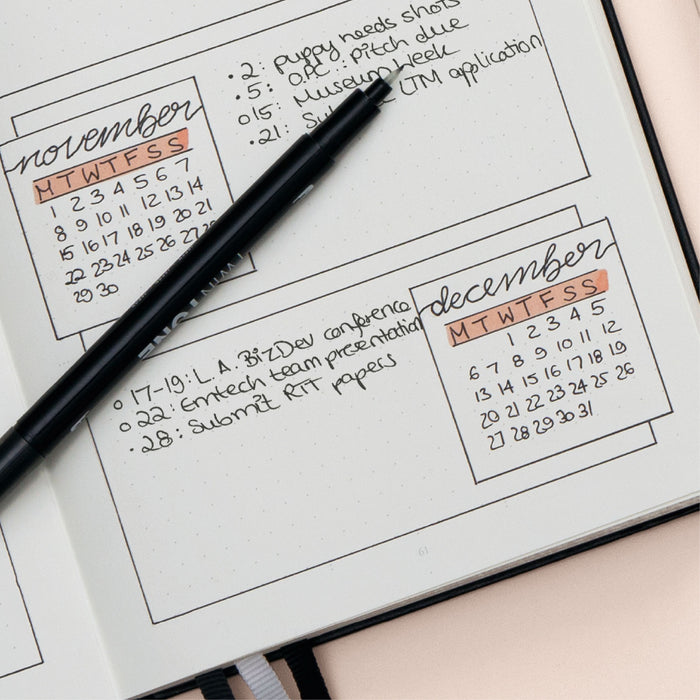 • 2: puppy needs shots
• 5: O.P.C.: pitch due
o 15: Museum Week
• 21: LTM application
november
M T W T F S S
1 2 3 4 5 6 7
8 9 10 11 12 13 14
15 16 17 18 19 20 21
22 23 24 25 26 27
29 30
december
M T W T F S S
1 2 3 4 5
6 7 8 9 10 11 12
13 14 15 16 17 18 19
20 21 22 23 24 25 26
27 28 29 30 31
o 17-19: L.A. BizDev conference
o 22: Emtech team presentation
• 28: Submit RIT papers
TWIN TONE
61